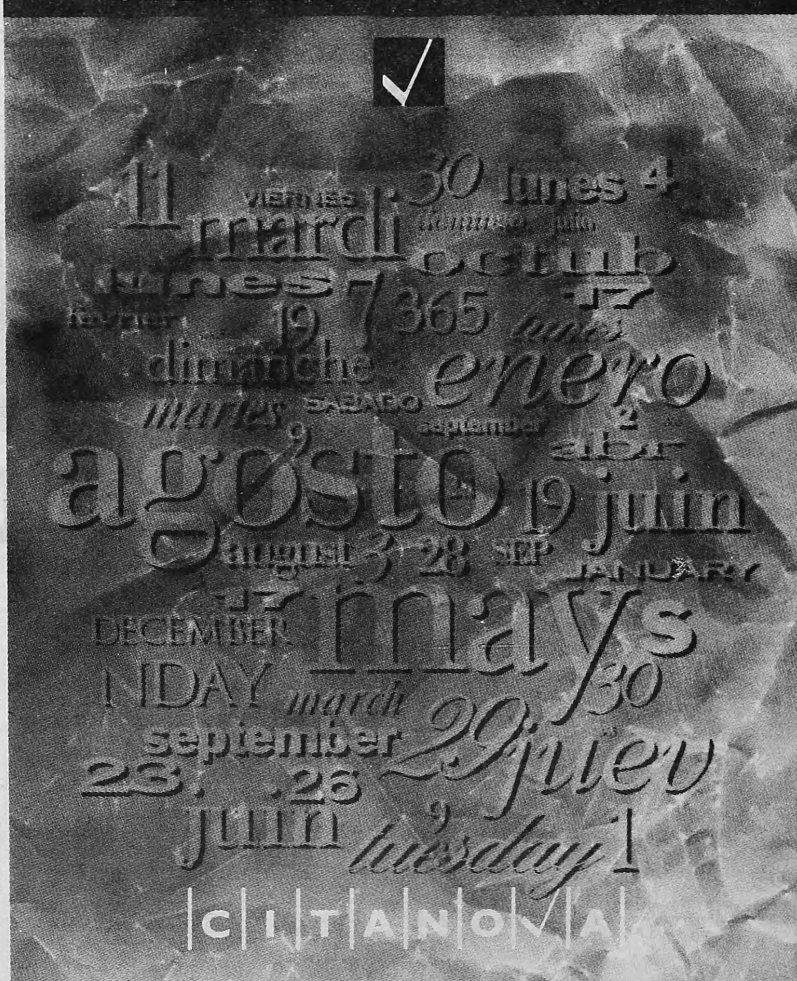 11 VIERNES 30 lunes 4
mardi domingo julio
lunes 7 octub
fevrier 19 365 17
lunes
dimanche enero
martes SABADO september 2
9 abr
agosto 19 juin
august 3 28 SEP JANUARY
17 may s
DECEMBER
NDAY march 30
september 29 juev
23 26
juin 9 tuesday 1
CITANOVA